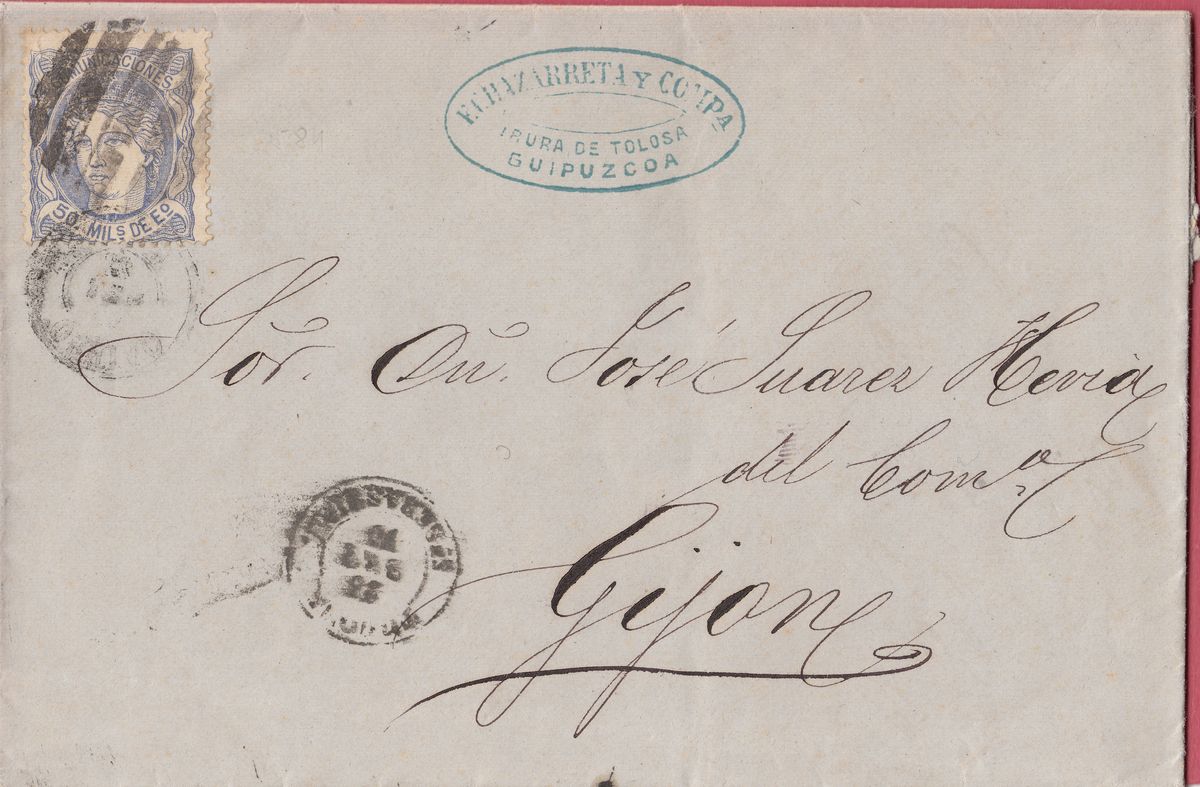 COMUNICACIONES
50 MILS DE Eo
ECHAZARRETA Y COMPA
IRURA DE TOLOSA
GUIPUZCOA
Sor. Dn. José Suarez Hevia
del Como.
Gijon